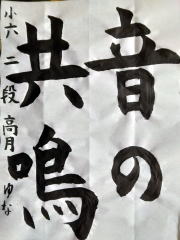 音の
共鳴
小六 二段 高月 ゆな